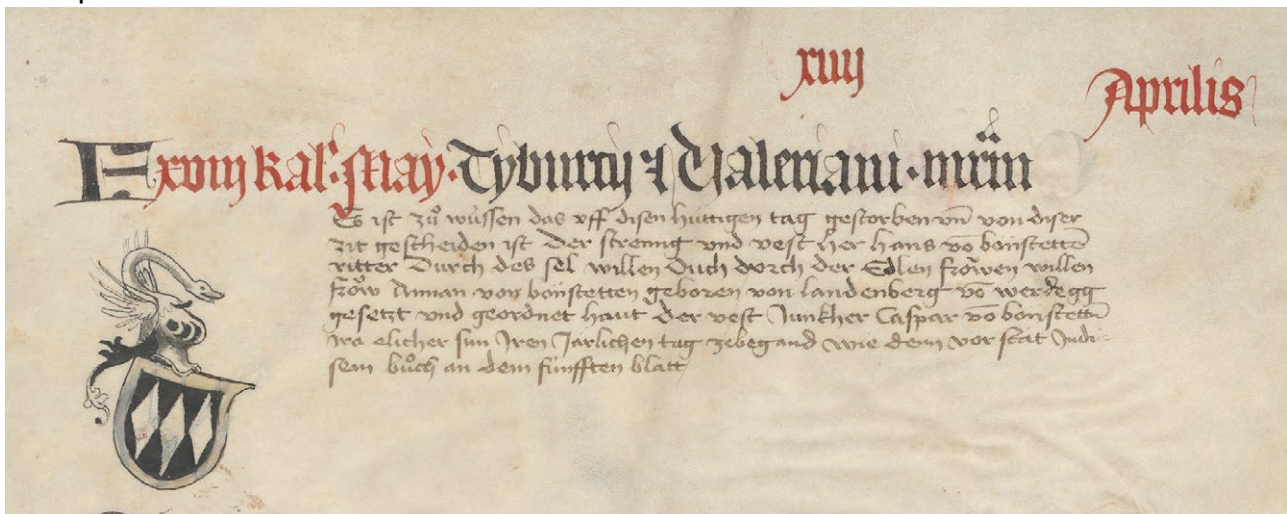 xiiij
Aprilis
F xviij kal' May · Tyburcij ⁊ Valeriani · mr̄m
Es ist zů wüssen das vff disen hüttigen tag gestorben vn̄ von diser
zit gescheiden ist Der streng vnd vest her hans vō bonstettē
ritter Durch des sel willen Ouch dorch der Edlen frowen willen
frow Annan von bonstetten geboren von landenberg vō werdegg
gesetzt vnd geordnet haut der vest Junkher Caspar vō bonstettē
Ira elicher sun Iren Jarlichen tag zebegand wie dem vor stat Indi-
sem bůch an dem fünfften blatt